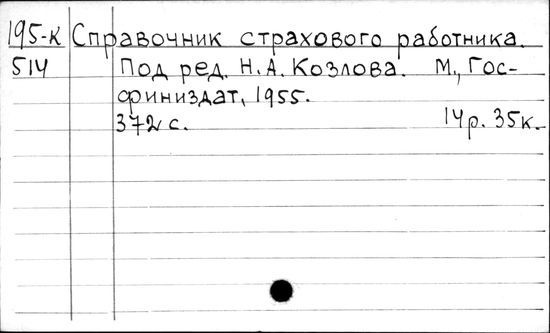 195-К Справочник страхового работника.
514 Под ред. Н.А. Козлова. М., Гос-
финиздат, 1955.
372 с. 14р. 35к.